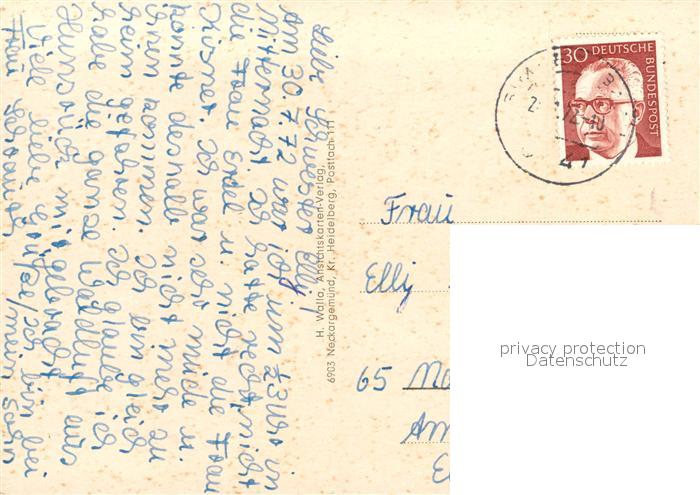 Liebe Schwester Elly!
Am 30.7.72 war ich um 23 Uhr in
Mitternacht. Ich hatte recht nicht
die Frau Erdel u. nicht die Frau
Ich war sehr müde u.
konnte deshalb nicht mehr zu
Ihnen kommen. Ich bin gleich
heim gefahren. Ich glaube ich
habe die ganze Waldluft aus
Hunsrück mitgebracht
Viele liebe Grüße / Ich bin bei
Frau / mein Sohn
H. Walla, Ansichtskarten-Verlag,
6903 Neckargemünd, Kr. Heidelberg, Postfach 111
30 DEUTSCHE
BUNDESPOST
Frau
Elly
65 Ma
Am
privacy protection
Datenschutz